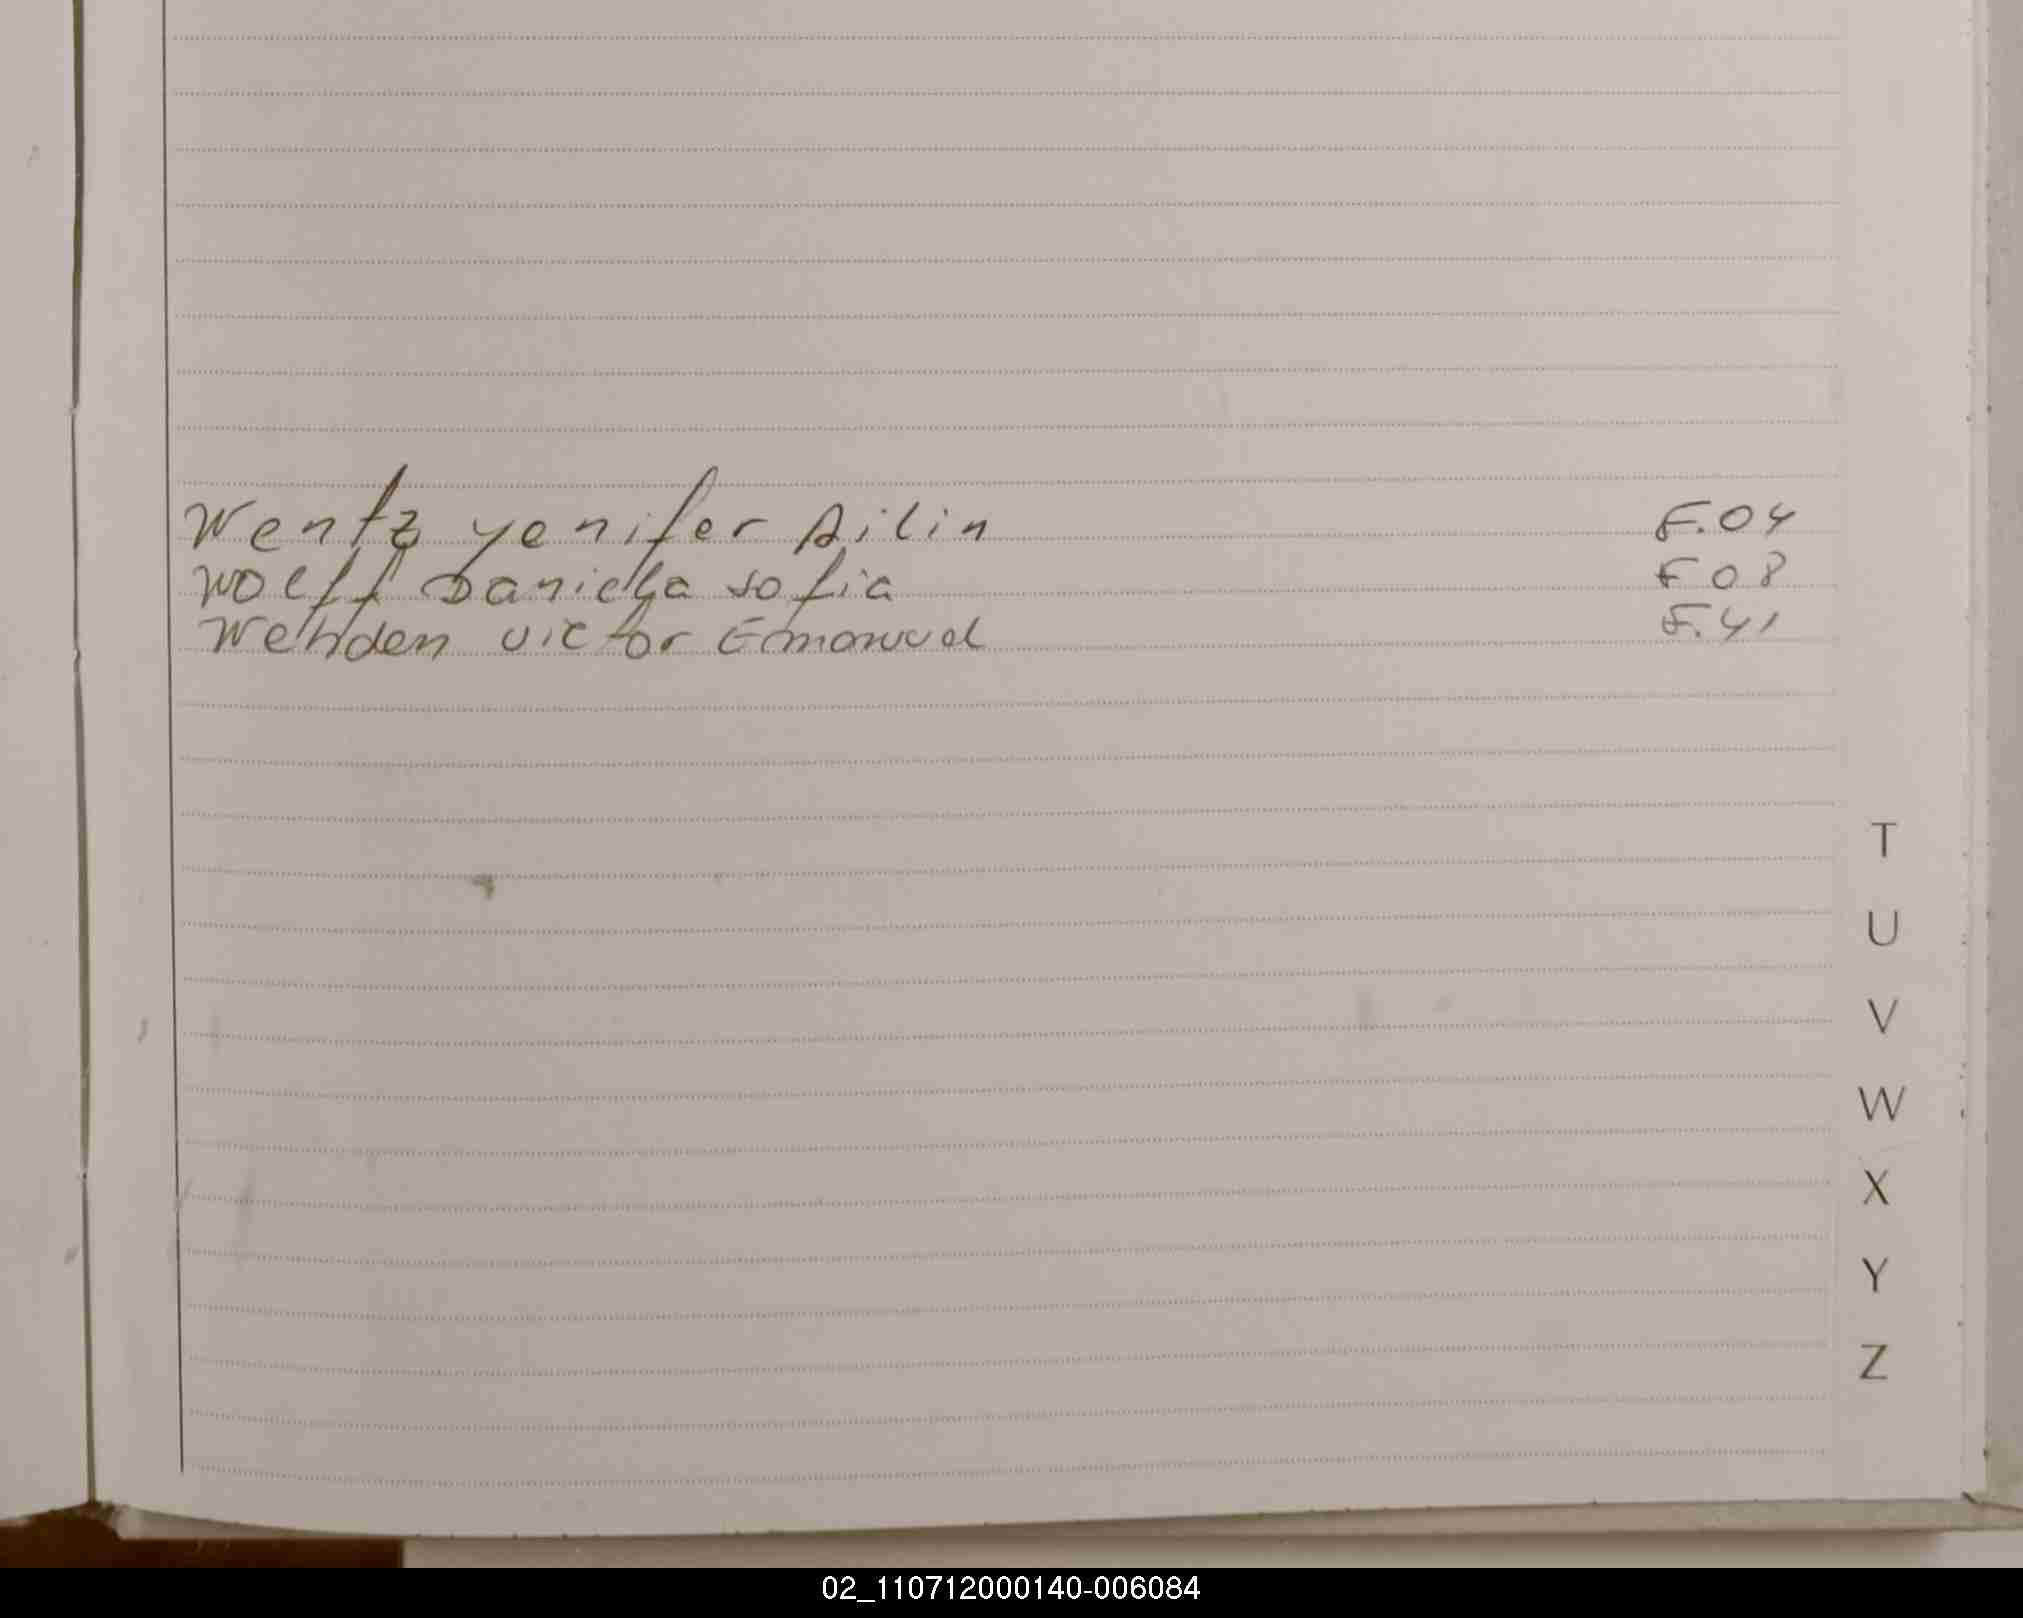 Wentz yenifer Ailin F.04
Wolff Daniela sofia F08
Wehden victor Emanuel F.41
T
U
V
W
X
Y
Z
02_110712000140-006084